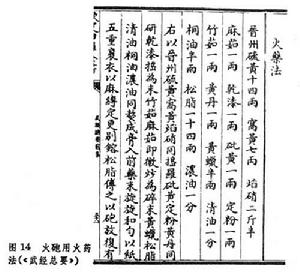 火藥法
晉州硫黃十四兩 窩黃七兩 焰硝二斤半
麻茹一兩 乾漆一兩 砒黃一兩 定粉一兩
竹茹一兩 黃丹一兩 黃蠟半兩 清油一分
桐油半兩 松脂一十四兩 濃油一分
右以晉州硫黃窩黃焰硝同搗羅砒黃定粉黃丹同
研乾漆搗為末竹茹麻茹即微炒為碎末黃蠟松脂
清油桐油濃油同熬成膏入前藥末旋旋和勻以紙
五重裹衣以麻縛定更別鎔松脂傅之以砲放復有
图 14 火炮用火药
法(《武经总要》)